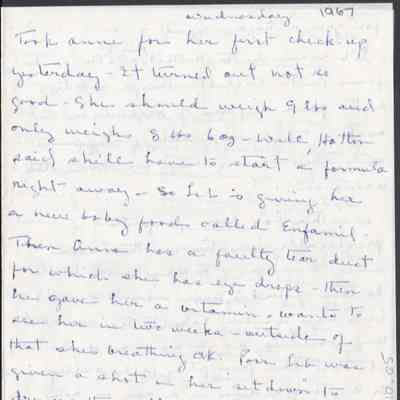 Wednesday 1967
Took Anne for her first check-up
yesterday - It turned out not so
good - She should weigh 9 lbs and
only weighs 8 lbs 6 oz - Well,
said she'll have to start a formula
right away - So Lib is giving her
a new baby food called Enfamil -
Then Anne has a faulty tear duct
for which she has eye drops - Then
he gave her a vitamin - wants to
see her in two weeks - outside of
that she's breathing ok. Poor Lib was
given a shot in her sit down to
10.05